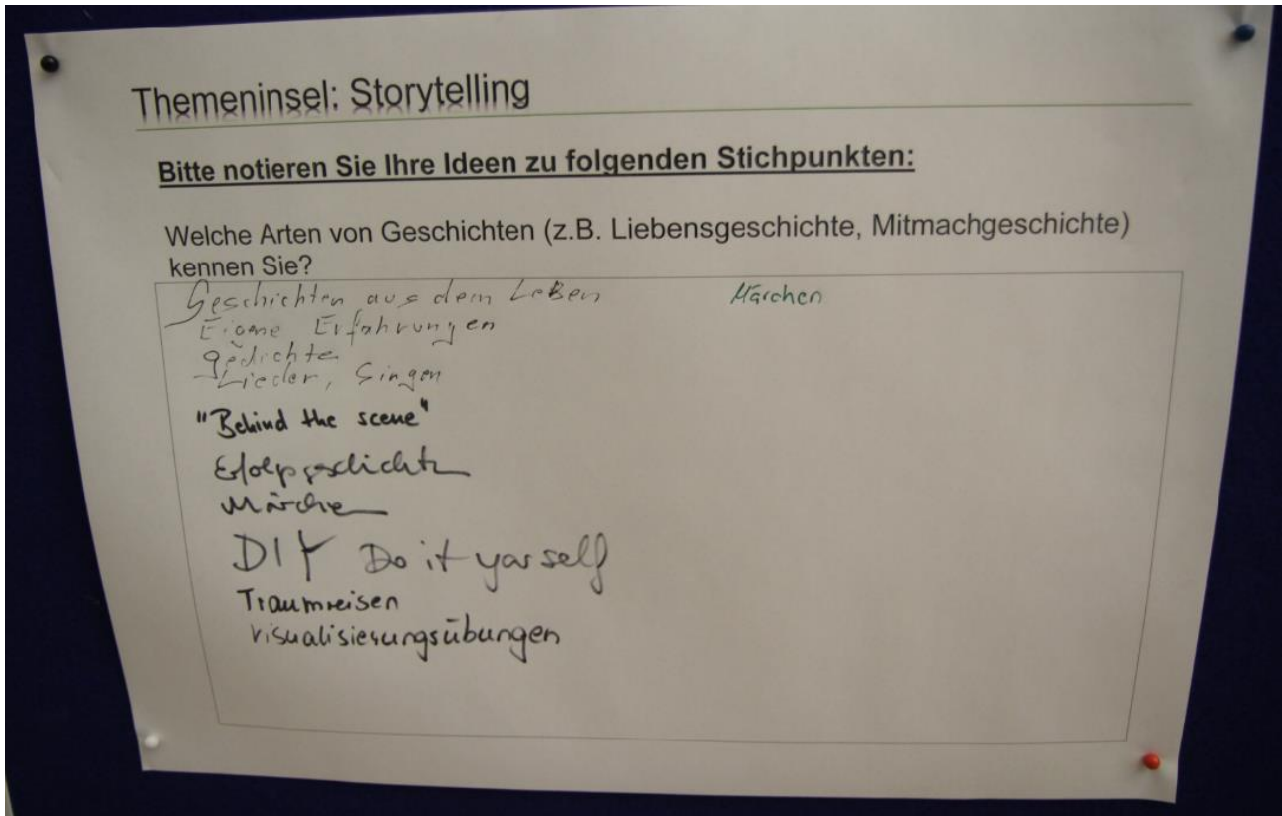 Themeninsel: Storytelling
Bitte notieren Sie Ihre Ideen zu folgenden Stichpunkten:
Welche Arten von Geschichten (z.B. Liebensgeschichte, Mitmachgeschichte)
kennen Sie?
Geschichten aus dem Leben Märchen
Eigene Erfahrungen
gedichte
Lieder, Singen
"Behind the scene"
Erfolgsgeschichte
Märchen
DIY Do it yorself
Traumreisen
Visualisierungsübungen